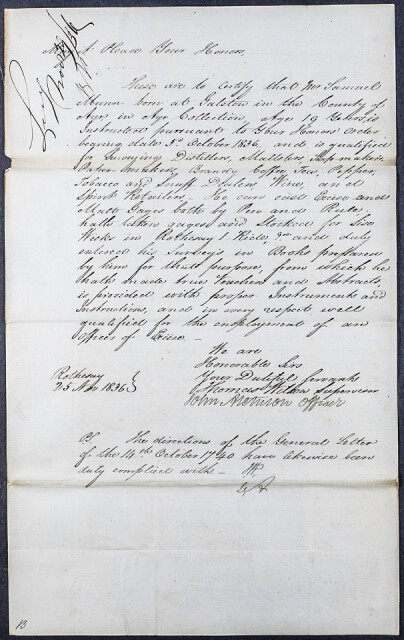 May it Please Your Honors,
These are to Certify that Mr Samuel
Munn born at Galston in the County of
Ayr in Ayr Collection, Aged 19 Years is
Instructed pursuant to Your Honors' Order
bearing date 3d October 1836 and is qualified
for Surveying Distillers, Maltsters, Soap makers
Paper makers, Brandy Coffee, Tea, Pepper,
Tobacco and Snuff Dealers Wine, and
Spirit Retailers. He can cast Excise and
Malt Gages both by Pen and Rule,
hath taken gages and Stocked for Six
Weeks in Rothesay 1 Ride, and duly
entered his Surveys in Books prepared
by him for that purpose, from which he
hath made true Vouchers and Abstracts,
is provided with proper Instruments and
Instructions, and in every respect well
qualified for the employment of an
Officer of Excise. —
We are
Honorable Sirs
Your Dutiful Servants
Rothesay
25 Nov 1836
Thomas Wilson Supervisor
John Officer
PS. The directions of the General Letter
of the 14th October 1740 have likewise been
duly complied with — TW
13